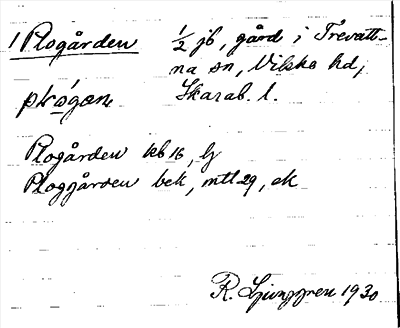 1 Plogården 1/2 jb, gård i Trevatt-
na sn, Vilske hd,
Skarab. l.
Plogården kb 16, lj
Ploggården bek, mtl 29, ek
R. Ljunggren 1930